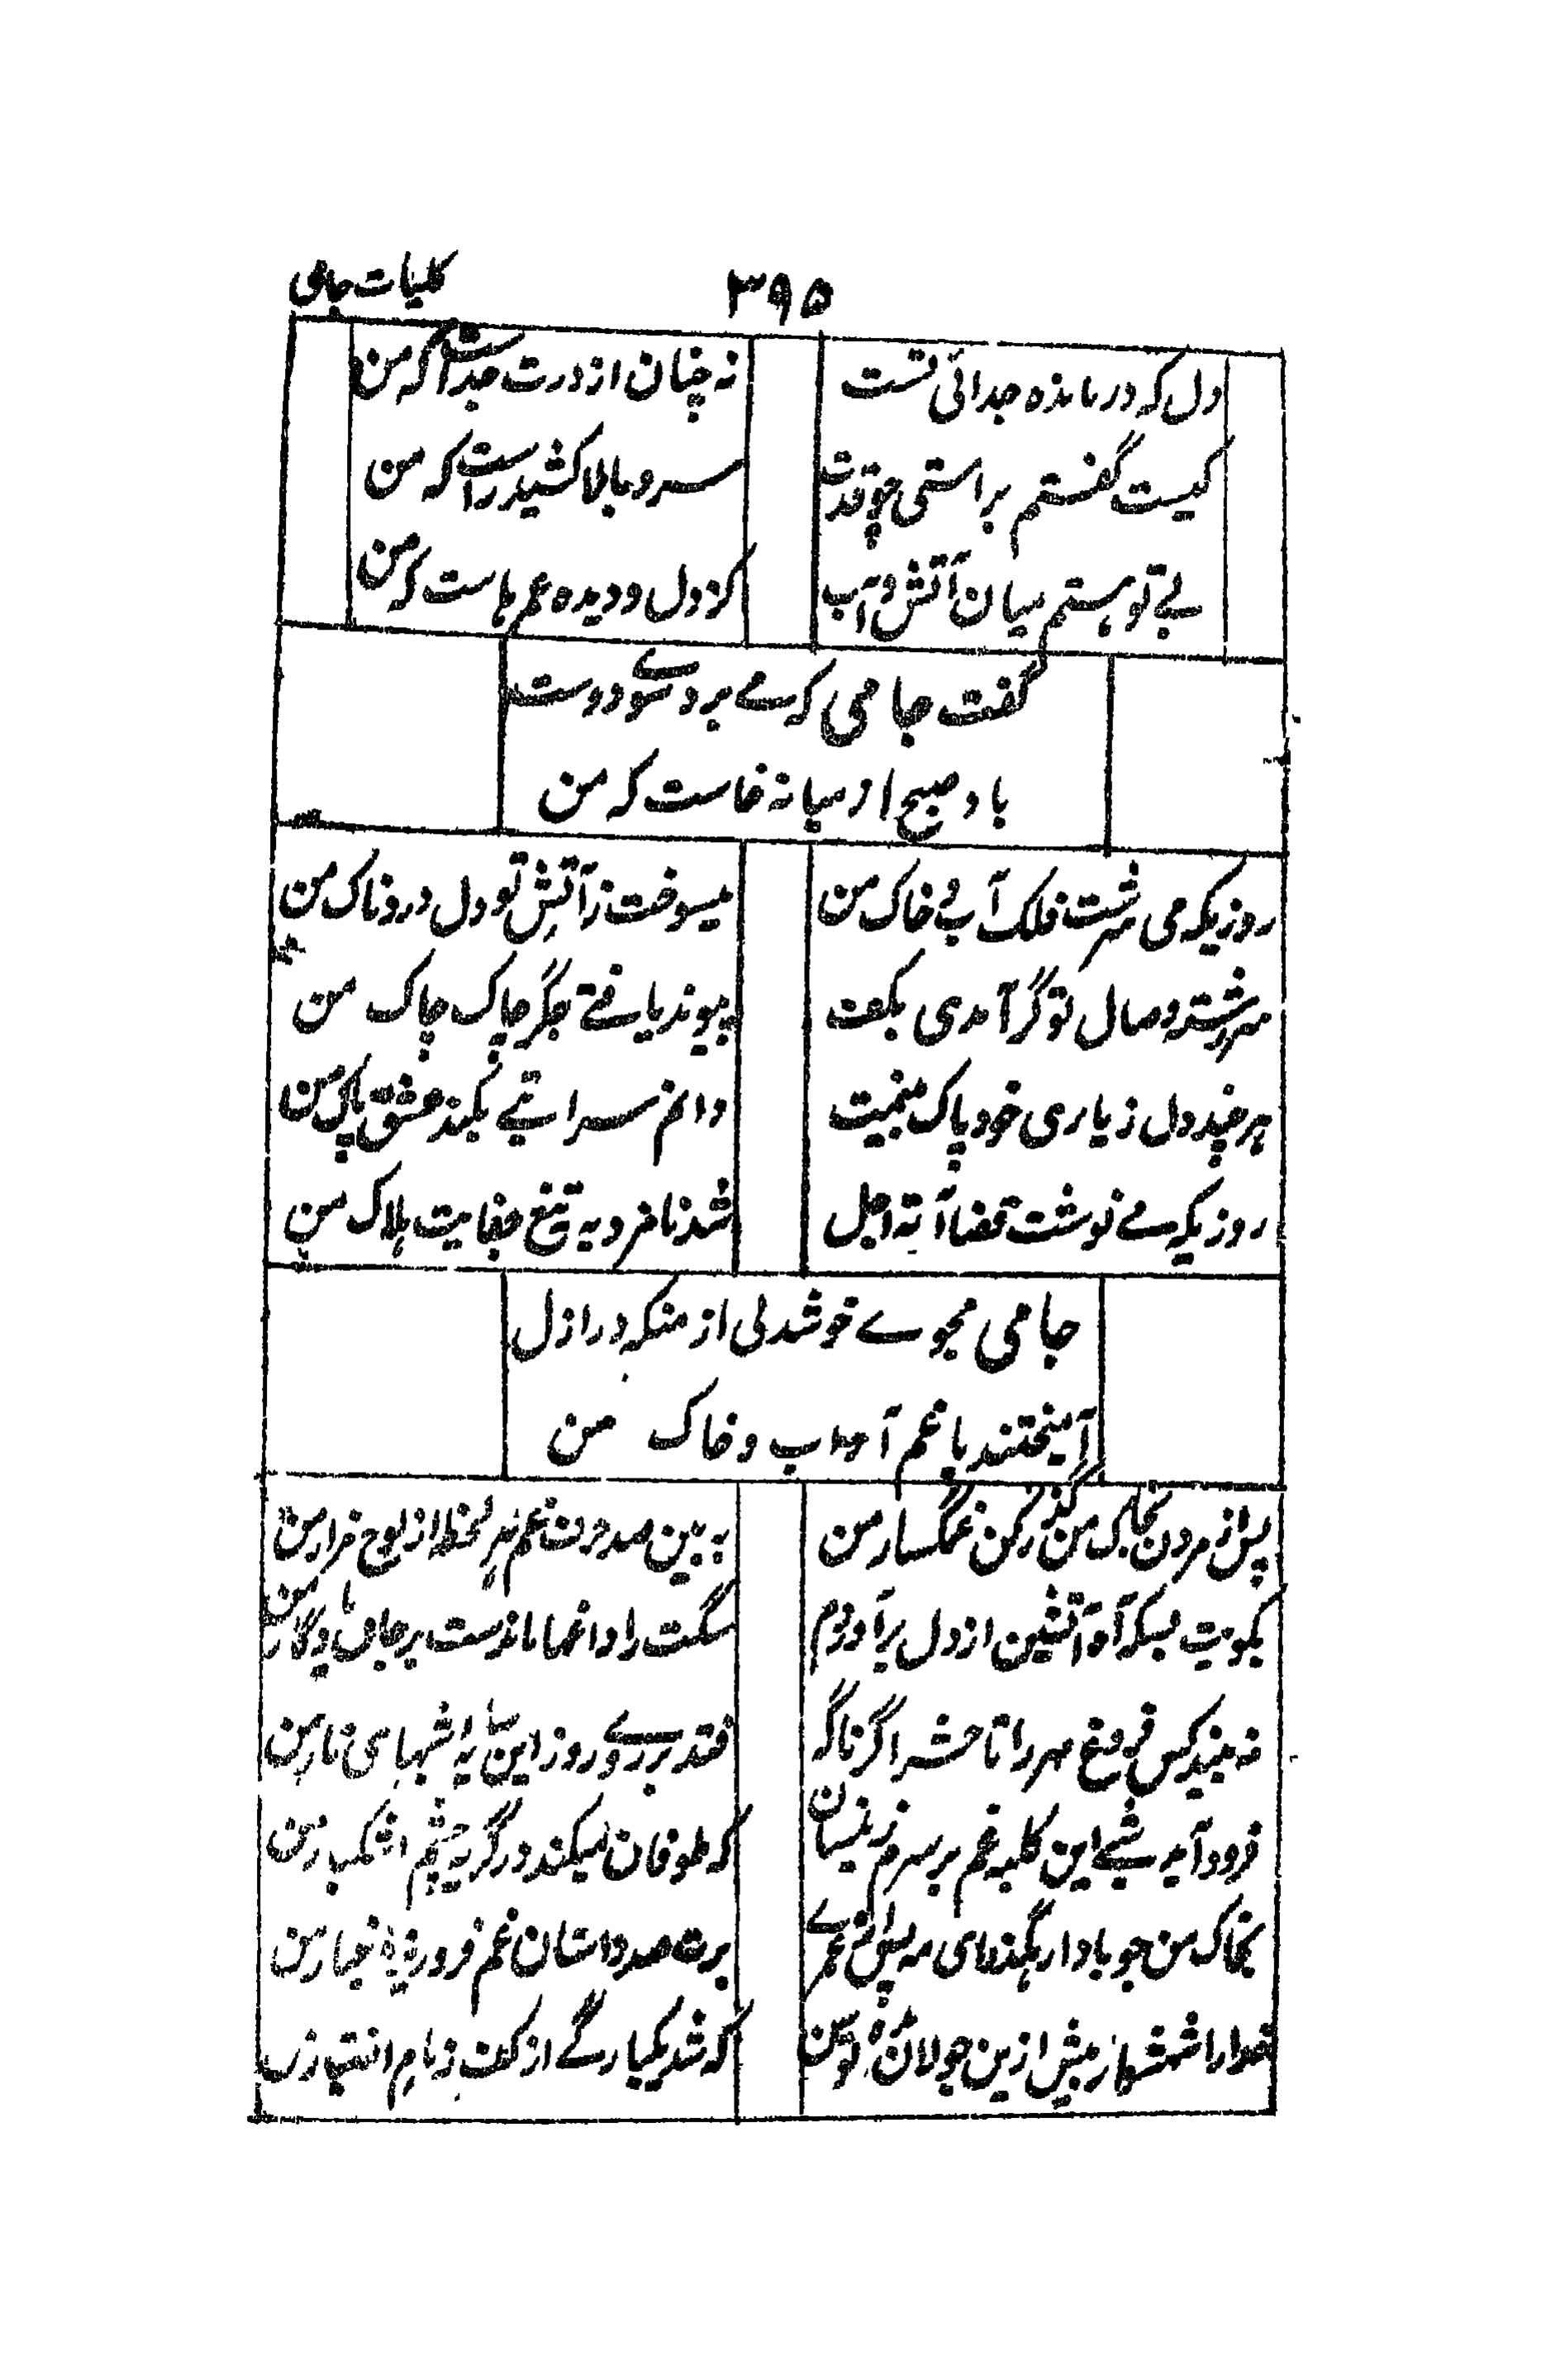 کلیات جامی
۳۹۵
دل که درمانده جدائی تست
نه چنان از درت جداست که من
کیست گفتم براستی چو قدت
سرو بالا کشید راست که من
بے تو هستم میان آتش و آب
کز دل و دیده غم هاست که من
گفت جامی که مے برد سوے دوست
باد صبح از میانه خاست که من
روزیکه می سرشت فلک آب و خاک من
میسوخت ز آتش تو دل دردناک من
سررشته وصال تو گر آمدی بکف
پیوند یافتے جگر چاک چاک من
هر چند دل ز یاری خود پاک بینمت
دانم سرایتے بکند عشق پاک من
روزیکه مے نوشت قضا آیه اجل
شد نامزد به تیغ جفایت هلاک من
جامی مجوے خوشدلی از منکه در ازل
آمیختند با غم آن ماه آب و خاک من
پس از مردن بخاک من گذر کن غمگسار من
به بین صد حرف غم هر لحظه از لوح مزار من
بکویت بسکه آه آتشین از دل برآوردم
سگت را داغها ماندست بر جان یادگار من
نه بیند کس فروغ مهر را تا حشر اگر ناگه
فتد بر روے روز این سایه شبهای تار من
فرود آید شبے این کلبه غم بر سرم زینسان
که طوفان میکند در گریه چشم اشکبار من
بخاک من چو باد ار بگذری ای مه پس از عمرے
برت صد داستان غم فرو ریزد غبار من
خدا را شهسوار بیش ازین جولان مده توسن
که شد یکبارگے از کف زمام اختیار من